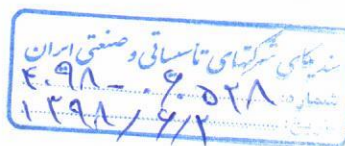 سندیکای شرکتهای تاسیساتی و صنعتی ایران
شماره: ۴۰۹۸-۰۶۰۵۲۸
تاریخ: ۱۳۹۸/۶/۲